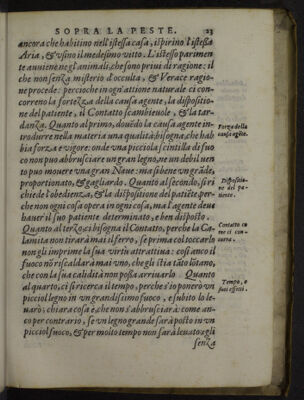 SOPRA LA PESTE. 23
ancora che habitino nell'istessa casa, ispirino l'istessa
Aria, & vsino il medesimo vitto. L'istesso parimen
te auuiene ne gl'animali, che sono priui di ragione: il
che non senza misterio d'occulta, & Verace ragio-
ne procede: percioche in ogn'attione naturale ci con-
correno la fortezza della causa agente, la dispositio-
ne del patiente, il Contatto scambieuole, & la tar-
danza. Quanto al primo, douēdo la causa agente in-
trodurre nella materia una qualità; bisogna, che hab
bia forza e vigore: onde vna picciola scintilla di fuo
co non puo abbrusciare un gran legno, ne un debil uen
to puo mouere vna gran Naue: ma si bene vn grāde,
proportionato, & gagliardo. Quanto al secondo, si ri
chiede l'obedienza, & la dispositione del patiēte, per-
che non ogni cosa opera in ogni cosa, ma l'agente deue
hauer il suo patiente determinato, e ben disposto.
Quanto al terzo, ci bisogna il Contatto, perche la Ca-
lamita non tirarà mai il ferro, se prima col toccarlo
non gli imprime la sua virtu attrattiua: cosi anco il
fuoco nō riscaldarà mai vno, che gli stia tāto lōtano,
che con la sua calidità non poßa arriuarlo. Quanto
al quarto, ci si ricerca il tempo, perche s'io ponerò un
picciol legno in vn grandissimo fuoco, e subito lo le-
uarò; chiara cosa è, che non s'abbrusciarà: come an-
co per contrario, se vn legno grande sarà posto in vn
picciol fuoco, & per molto tempo non sarà leuato; gli
senza
Forza della
causa agẽte.
Dispositio-
ne del pa-
tiente.
Contatto co
me ci con-
corra.
Tempo, e
suoi effetti.